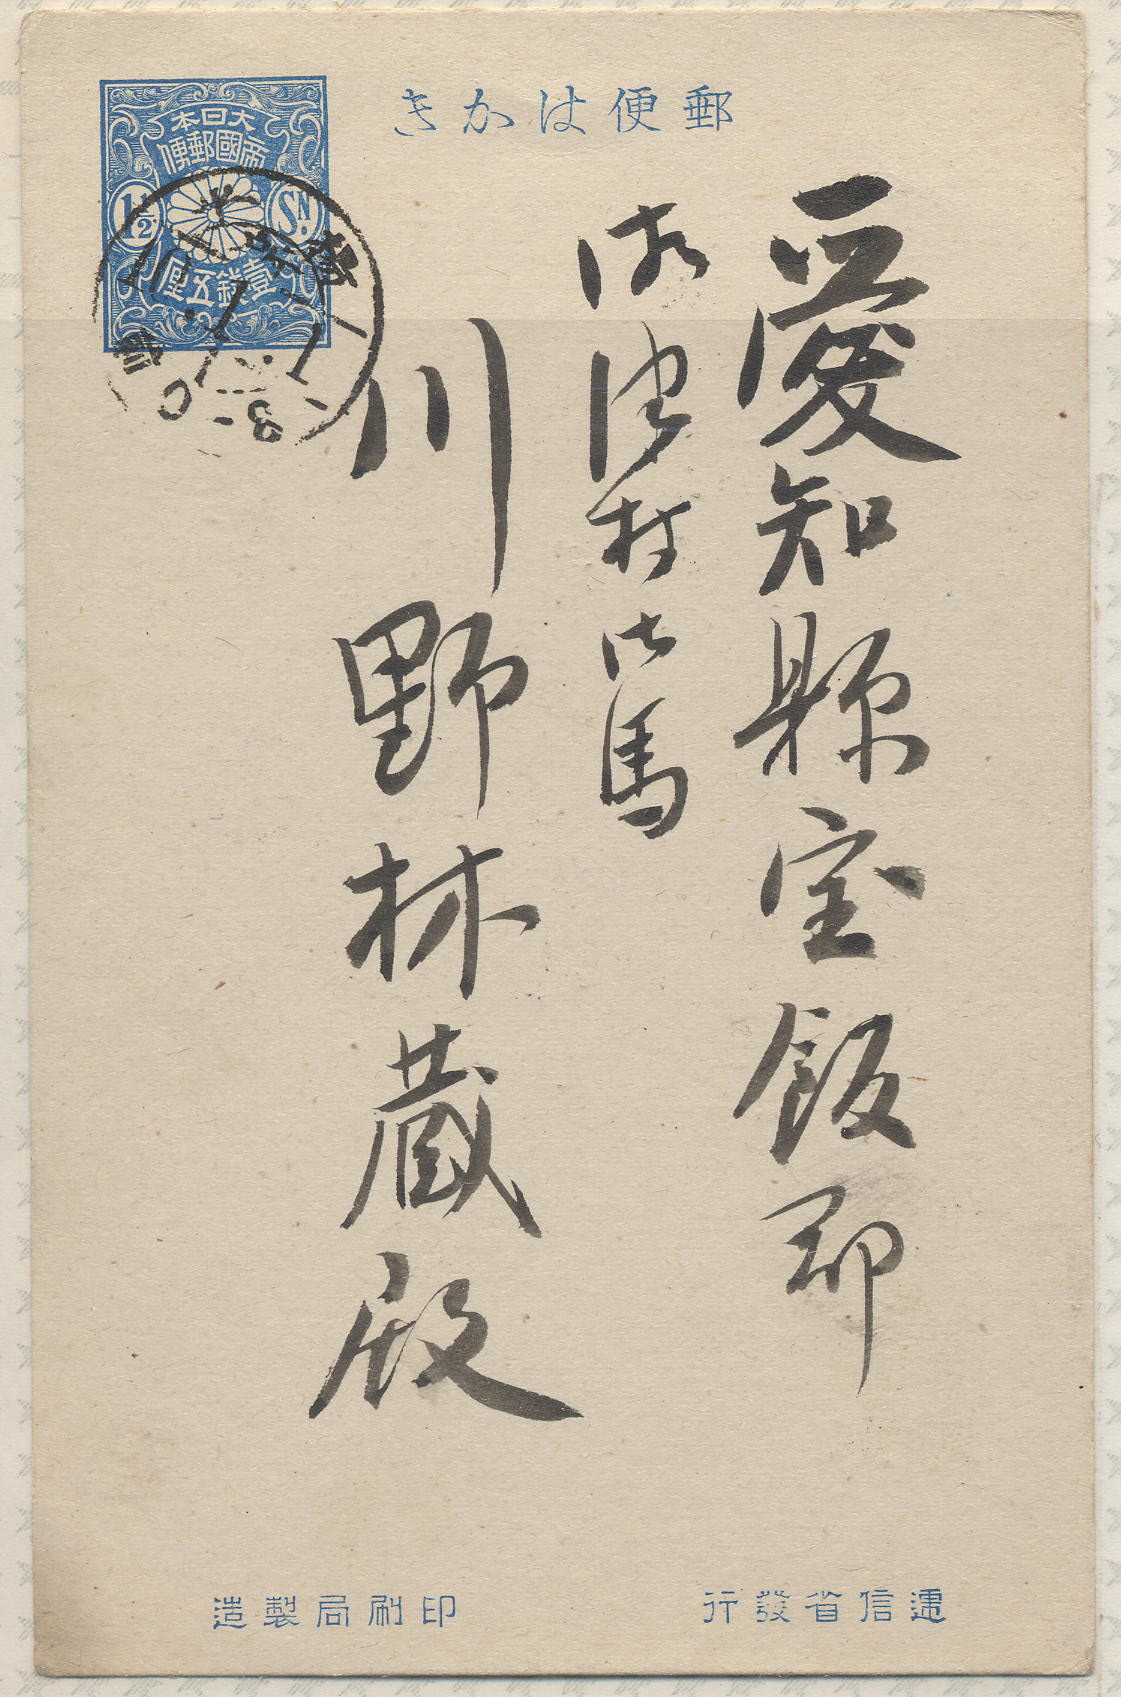 郵便はかき
大日本
帝國郵便
1½ SN.
壹錢五厘
愛知縣宝飯郡
御津村御馬
川野林蔵殿
10.1.1
0-8
遞信省發行
印刷局製造